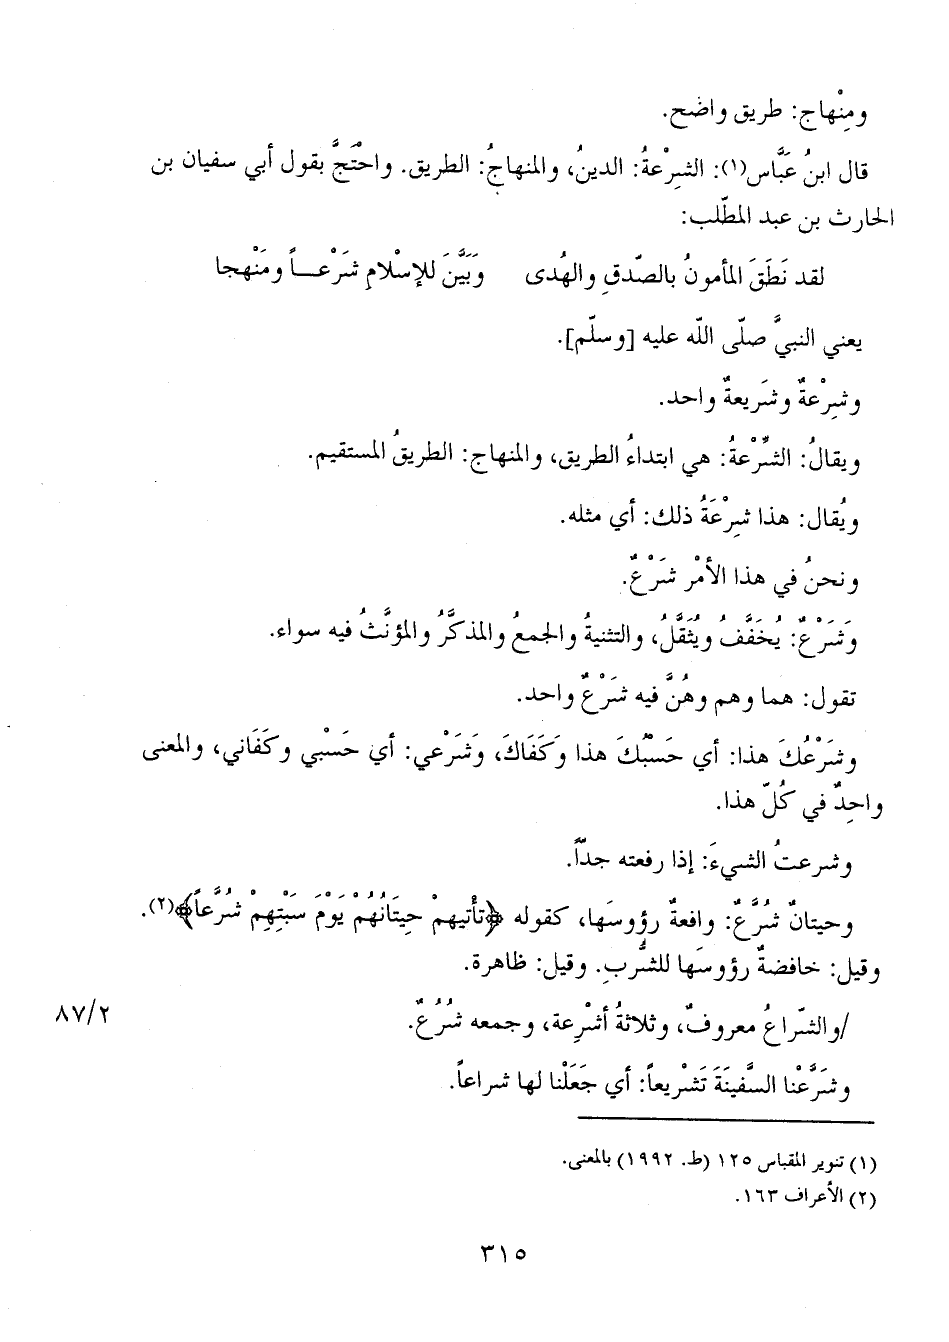 ومِنْهاج: طريق واضح.
قال ابنُ عَبَّاس(١): الشِرْعةُ: الدينُ، والمنهاجُ: الطريق. واحْتَجَّ بقول أبي سفيان بن
الحارث بن عبد المطّلب:
لقد نَطَقَ المأمونُ بالصّدقِ والهُدى وَبَيَّنَ للإسْلامِ شَرْعـاً ومَنْهجا
يعني النبيَّ صلّى اللّه عليه [وسلّم].
وشِرْعةٌ وشَريعةٌ واحد.
ويقالُ: الشِّرْعةُ: هي ابتداءُ الطريق، والمنهاج: الطريقُ المستقيم.
ويُقال: هذا شِرْعَةُ ذلك: أي مثله.
ونحنُ في هذا الأمْر شَرْعٌ.
وَشَرْعٌ: يُخَفَّفُ ويُثَقَّلُ، والتثنيةُ والجمعُ والمذكَّرُ والمؤنَّثُ فيه سواء.
تقول: هما وهم وهُنَّ فيه شَرْعٌ واحد.
وشَرْعُكَ هذا: أي حَسْبُكَ هذا وَكَفَاكَ، وَشَرْعي: أي حَسْبي وكَفَاني، والمعنى
واحِدٌ في كُلّ هذا.
وشرعتُ الشيءَ: إذا رفعته جدّاً.
وحيتانٌ شُرَّعٌ: وافعةٌ رؤوسَها، كقوله ﴿تأْتيهمْ حِيتَانُهُمْ يَوْمَ سَبْتِهِمْ شُرَّعاً﴾(٢).
وقيل: خافضةٌ رؤوسَها للشُّربِ. وقيل: ظاهرة.
/والشّراعُ معروفٌ، وثلاثةُ أشْرِعة، وجمعه شُرُعٌ.
٨٧/٢
وشَرَّعْنا السَّفينَةَ تَشْريعاً: أي جَعَلْنا لها شراعاً.
(١) تنوير المقباس ١٢٥ (ط. ١٩٩٢) بالمعنى.
(٢) الأعراف ١٦٣.
٣١٥